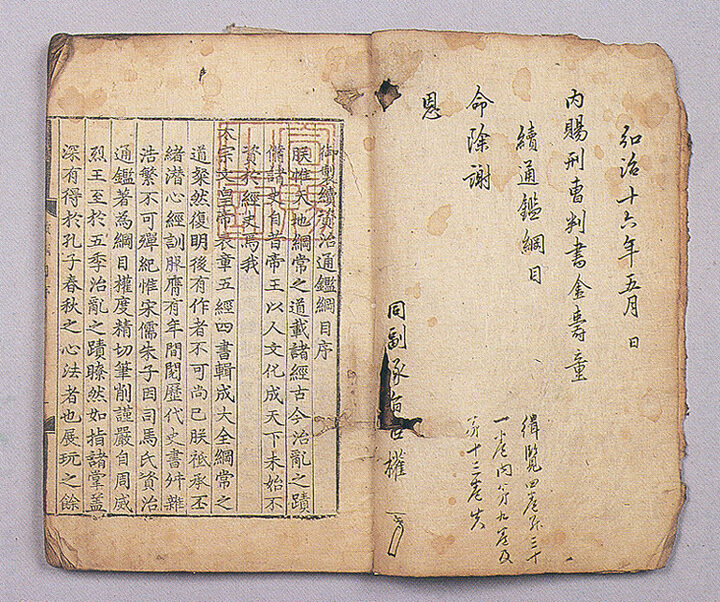 弘治十六年五月 日
內賜刑曺判書金壽童
續通鑑綱目
命除謝
恩
同副承旨臣權
覽四卷 三十
一卷內第九卷及
第十三卷失
御製續資治通鑑綱目序
朕惟天地綱常之道載諸經古今治亂之蹟
備諸史自昔帝王以人文化成天下未始不
資於經史焉我
太宗文皇帝表章五經四書輯成大全綱常之
道粲然復明後有作者不可尚已朕祗承丕
緒潛心經訓服膺有年間閱歷代史書舛雜
浩繁不可殫紀惟宋儒朱子因司馬氏資治
通鑑著為綱目權度精切筆削謹嚴自周威
烈王至於五季治亂之蹟瞭然如指諸掌蓋
深有得於孔子春秋之心法者也展玩之餘